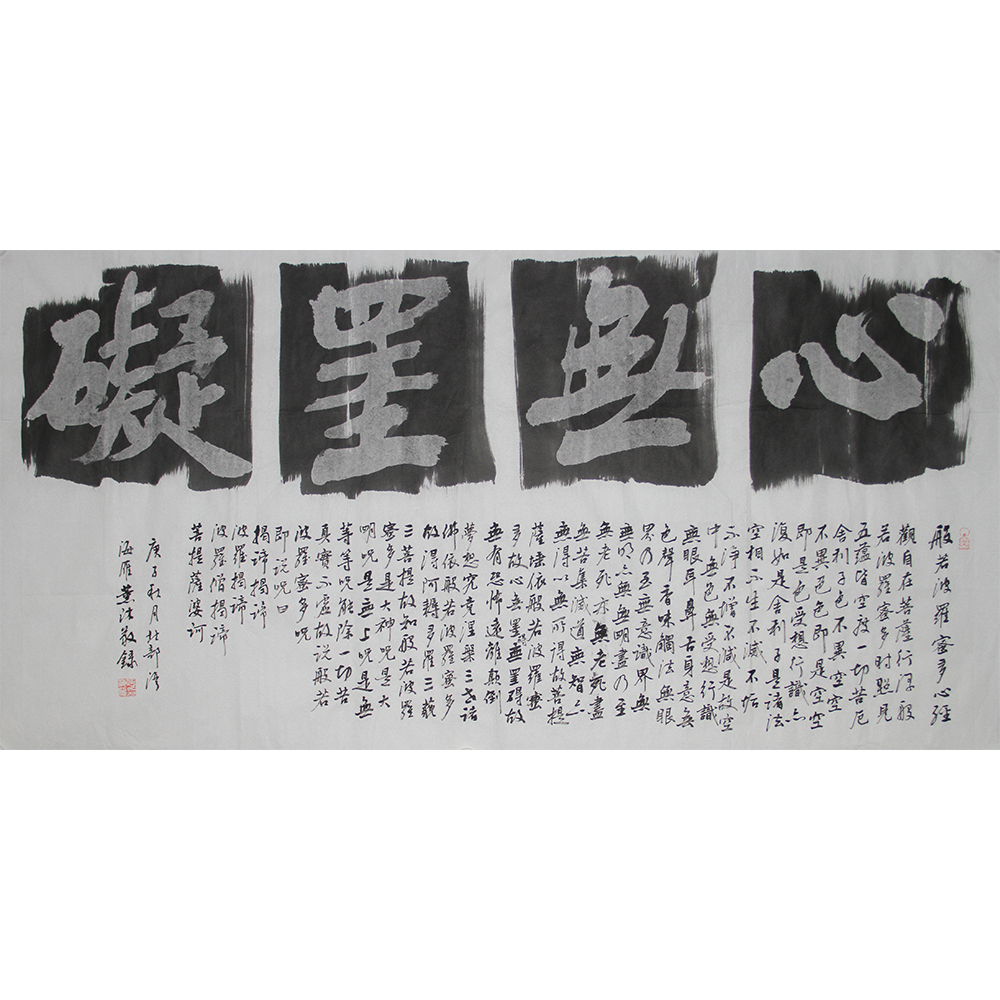 心無罣礙
般若波羅蜜多心經
觀自在菩薩行深般
若波羅蜜多時照見
五蘊皆空度一切苦厄
舍利子色不異空空
不異色色即是空空
即是色受想行識亦
復如是舍利子是諸法
空相不生不滅不垢
不淨不增不減是故空
中無色無受想行識
無眼耳鼻舌身意無
色聲香味觸法無眼
界乃至意識界無
無明亦無無明盡乃至
無老死亦無老死盡
無苦集滅道無智亦
無得以無所得故菩提
薩埵依般若波羅蜜
多故心無罣碍無罣碍故
無有恐怖遠離顛倒
夢想究竟涅槃三世諸
佛依般若波羅蜜多
故得阿耨多羅三藐
三菩提故知般若波羅
蜜多是大神呪是大
明呪是無上呪是無
等等呪能除一切苦
真實不虛故説般若
波羅蜜多呪
即説呪曰
揭諦揭諦
波羅揭諦
波羅僧揭諦
菩提薩婆訶
庚子秋月北部湾
海雁黄敬錄